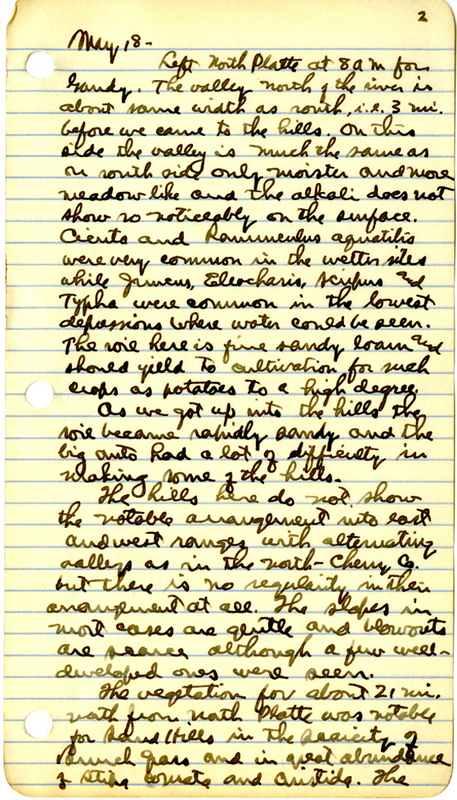 2
May 18-
Left North Platte at 8 am for
Gandy. The valley north of the river is
about same width as south, i.e. 3 mi.
before we came to the hills. On this
side the valley is much the same as
on south side only moister and more
meadow like and the alkali does not
show so noticeably on the surface.
Cicuta and Rannunculus aquatilis
were very common in the wetter sites
while Juncus, Eleocharis, Scirpus and
Typha were common in the lowest
depressions where water could be seen.
The soil here is fine sandy loam and
should yield to cultivation for such
crops as potatoes to a high degree.
As we got up into the hills the
soil became rapidly sandy and the
big auto had a lot of difficulty in
making some of the hills.
The hills here do not show
the notable arrangement into east
and west ranges with alternating
valleys as in the north - Cherry Co.
but there is no regularity in their
arrangement at all. The slopes in
most cases are gentle and blowouts
are scarce although a few well-
developed ones were seen.
The vegetation for about 21 mi.
north from North Platte was notable
for Sand Hills in the scarcity of
Bunch Grass and in great abundance
of Stipa comata and Aristida. The